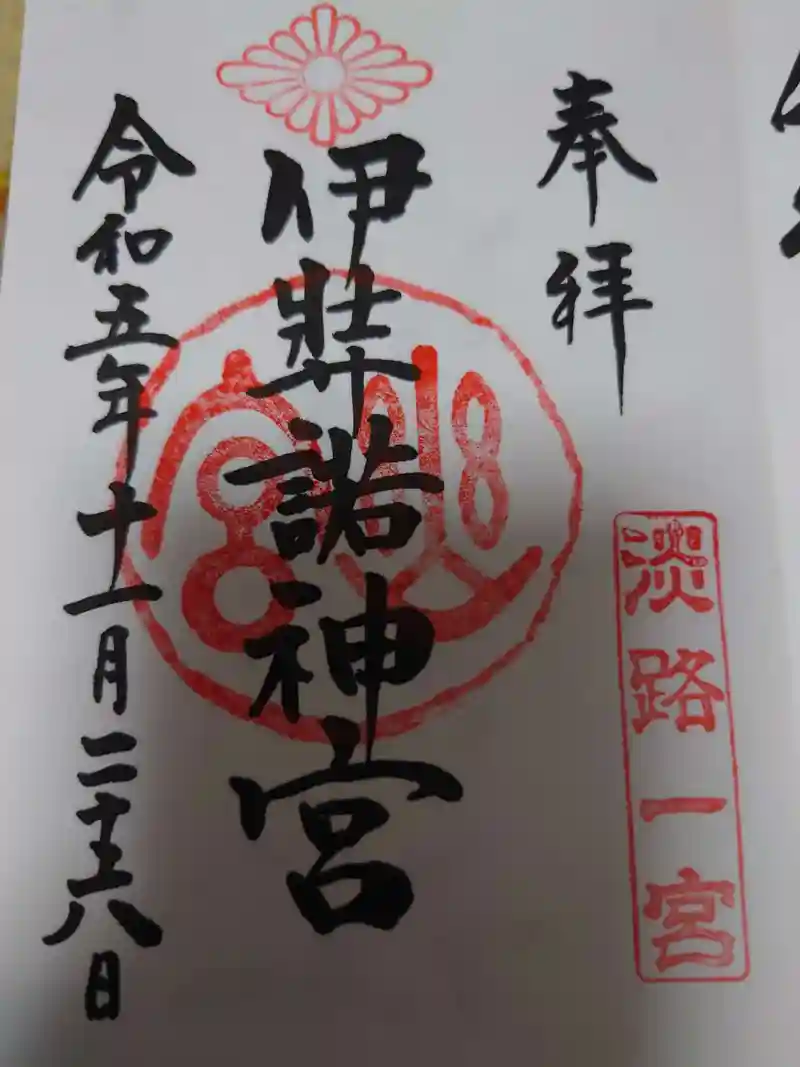 奉拝
淡路一宮
伊弉諾神宮
令和五年十一月二十六日